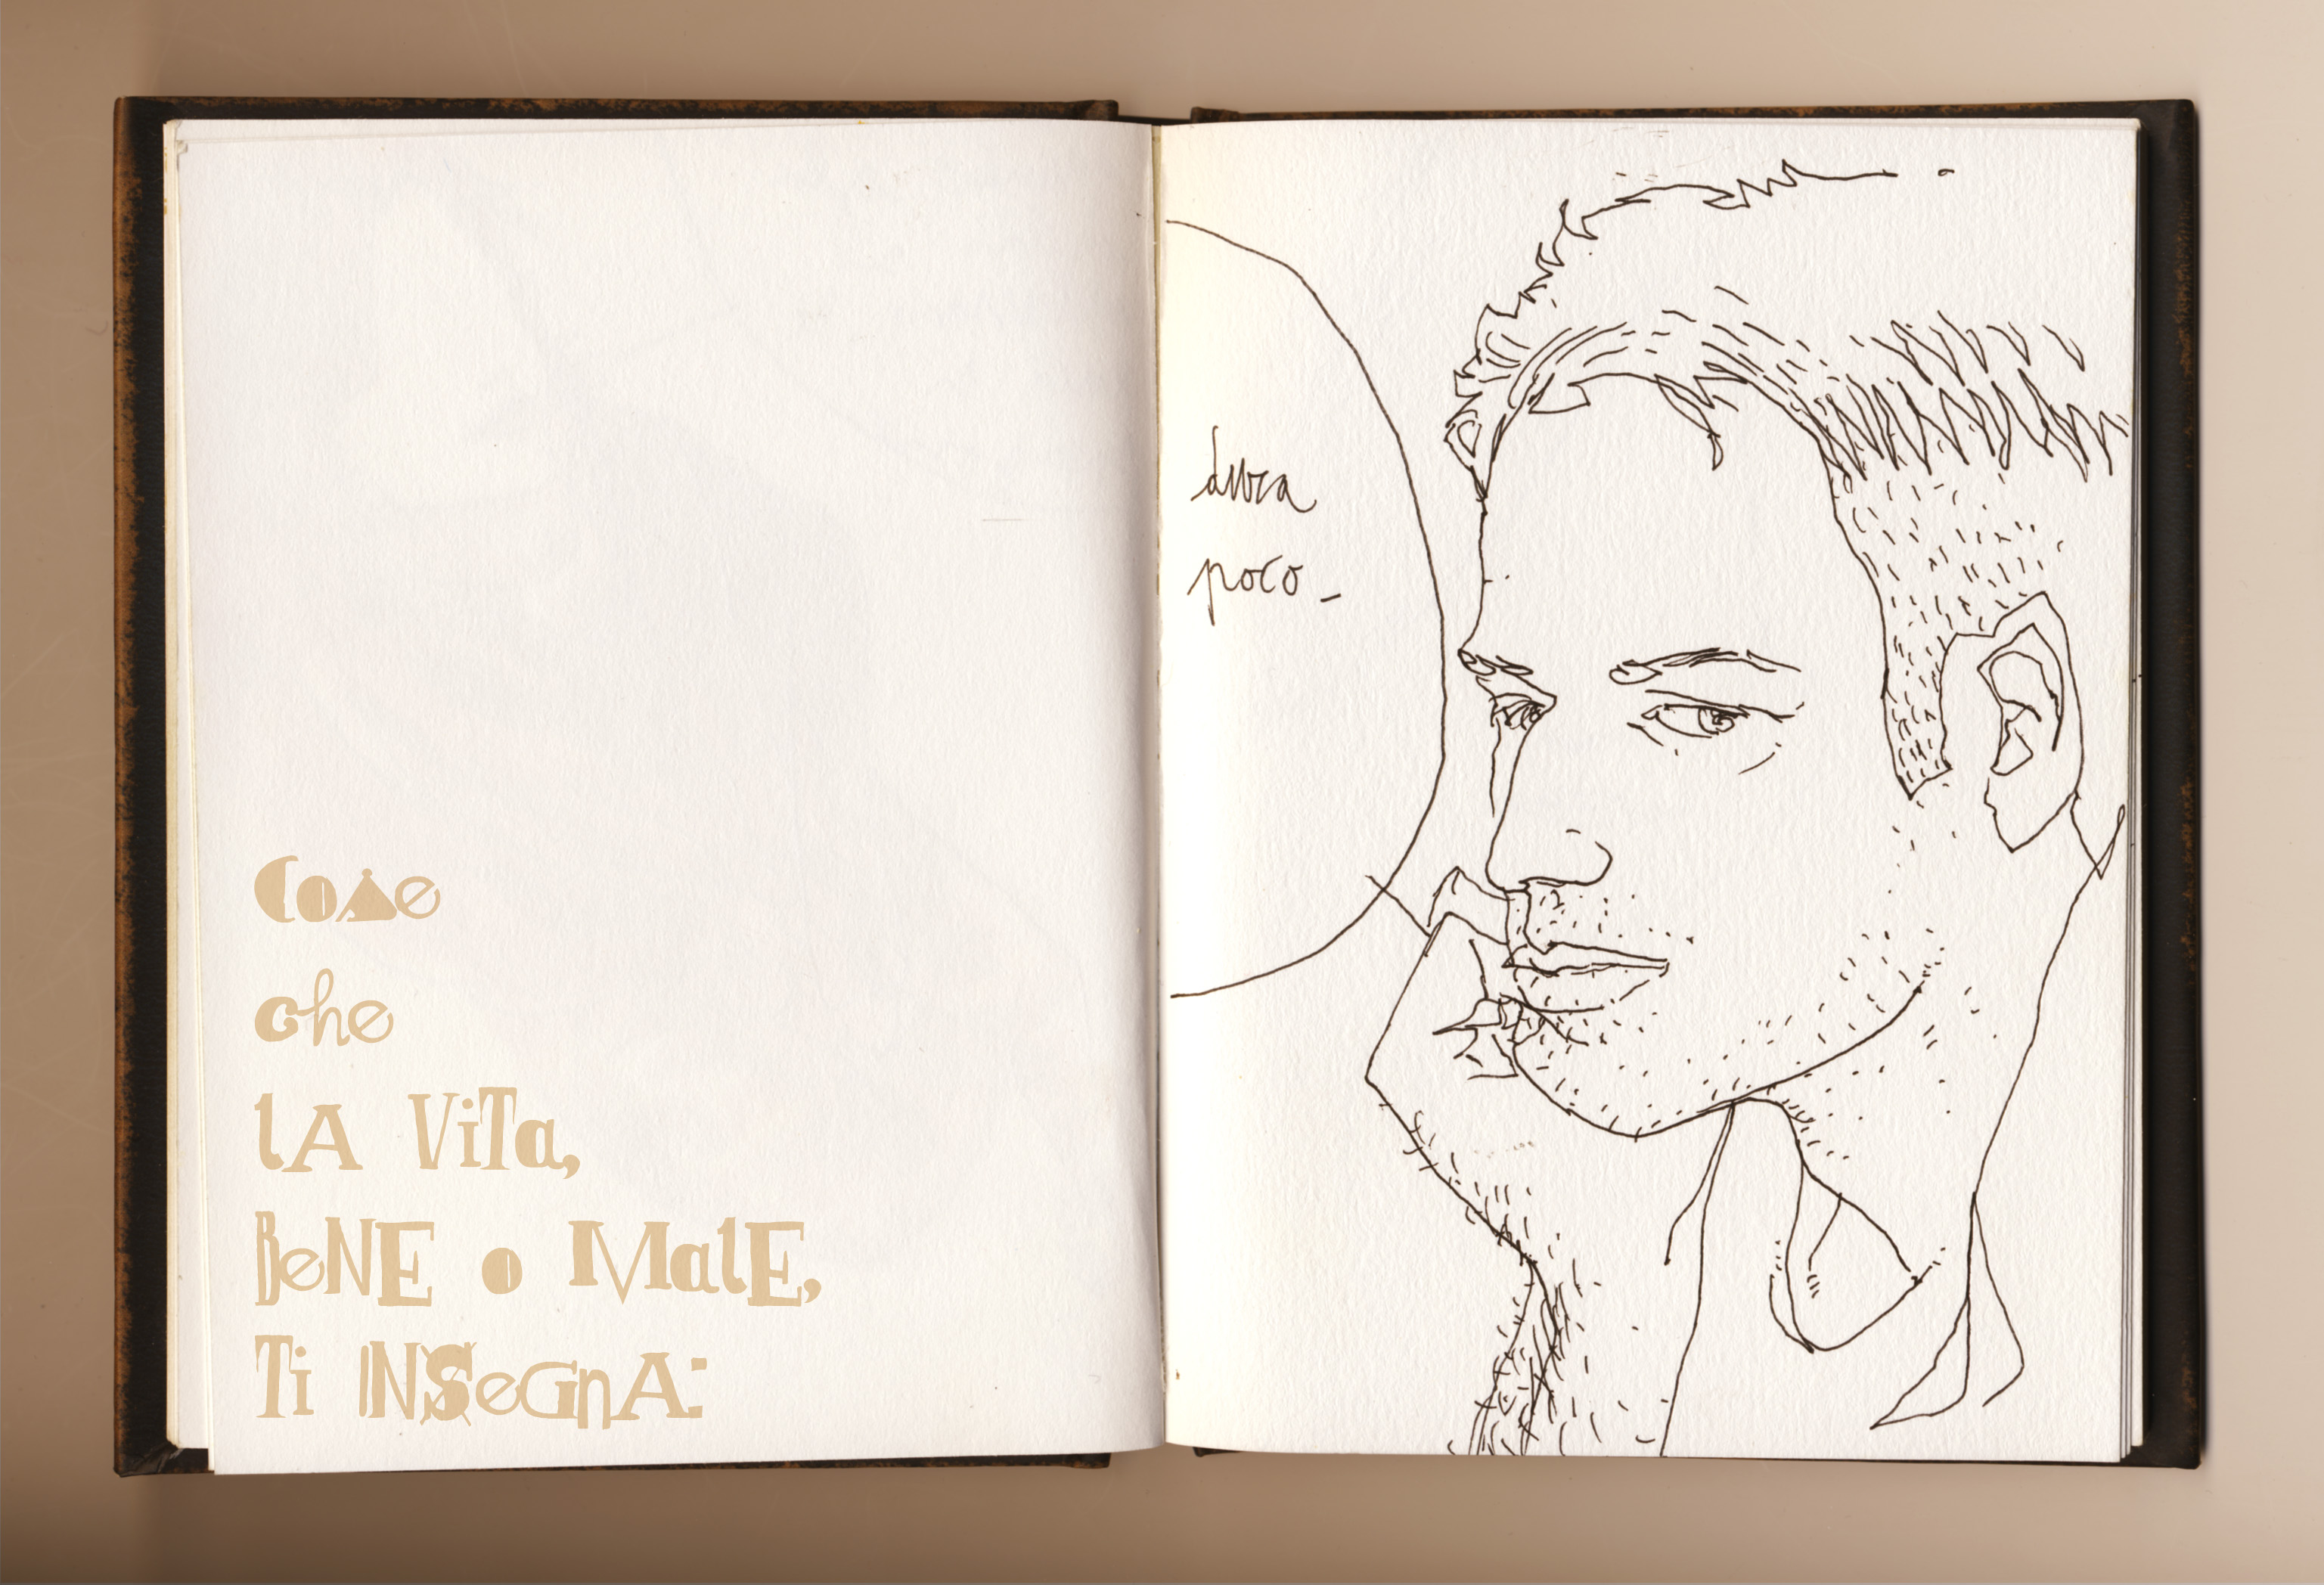 Come
che
lA ViTa,
BeNE o MalE,
Ti INSeGnA:
dura
poco_